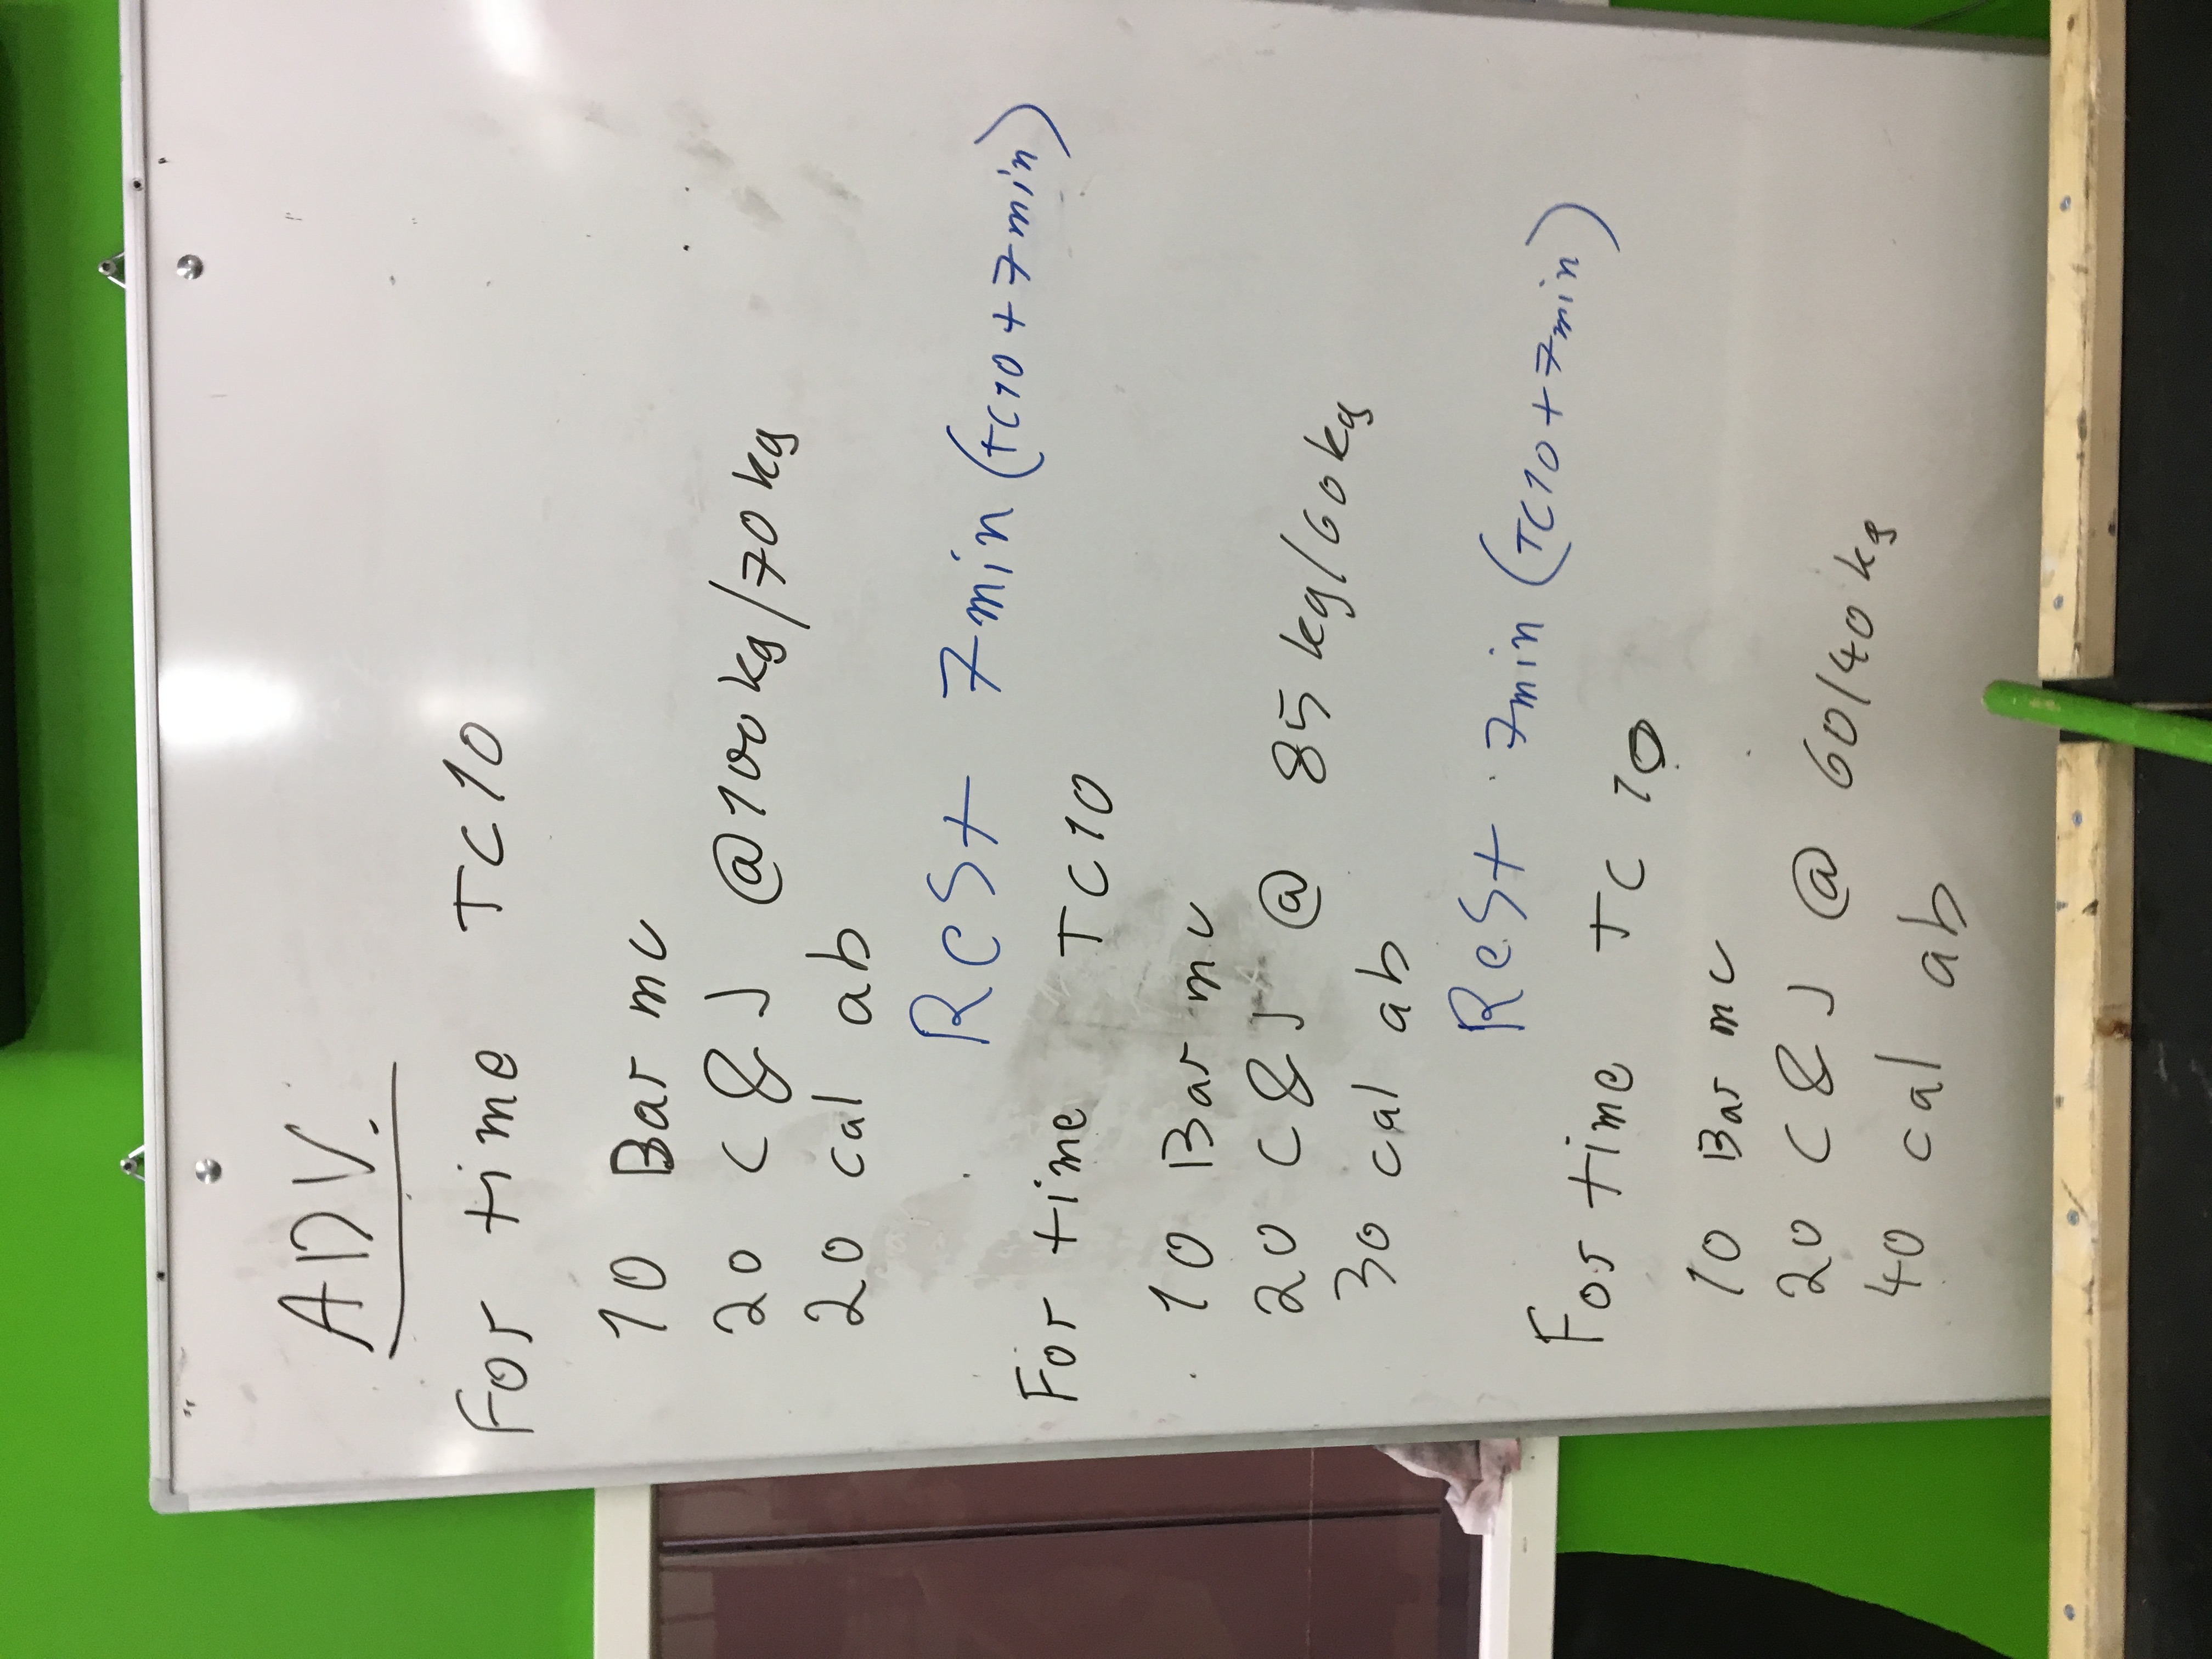 ADV.
For time TC10
10 Bar mu
20 C & J @100kg/70kg
20 cal ab
Rest 7min (TC10+7min)
For time TC10
10 Bar mu
20 C & J @ 85kg/60kg
30 cal ab
Rest 7min (TC10+7min)
For time TC 10
10 Bar mu
20 C & J @ 60/40kg
40 cal ab